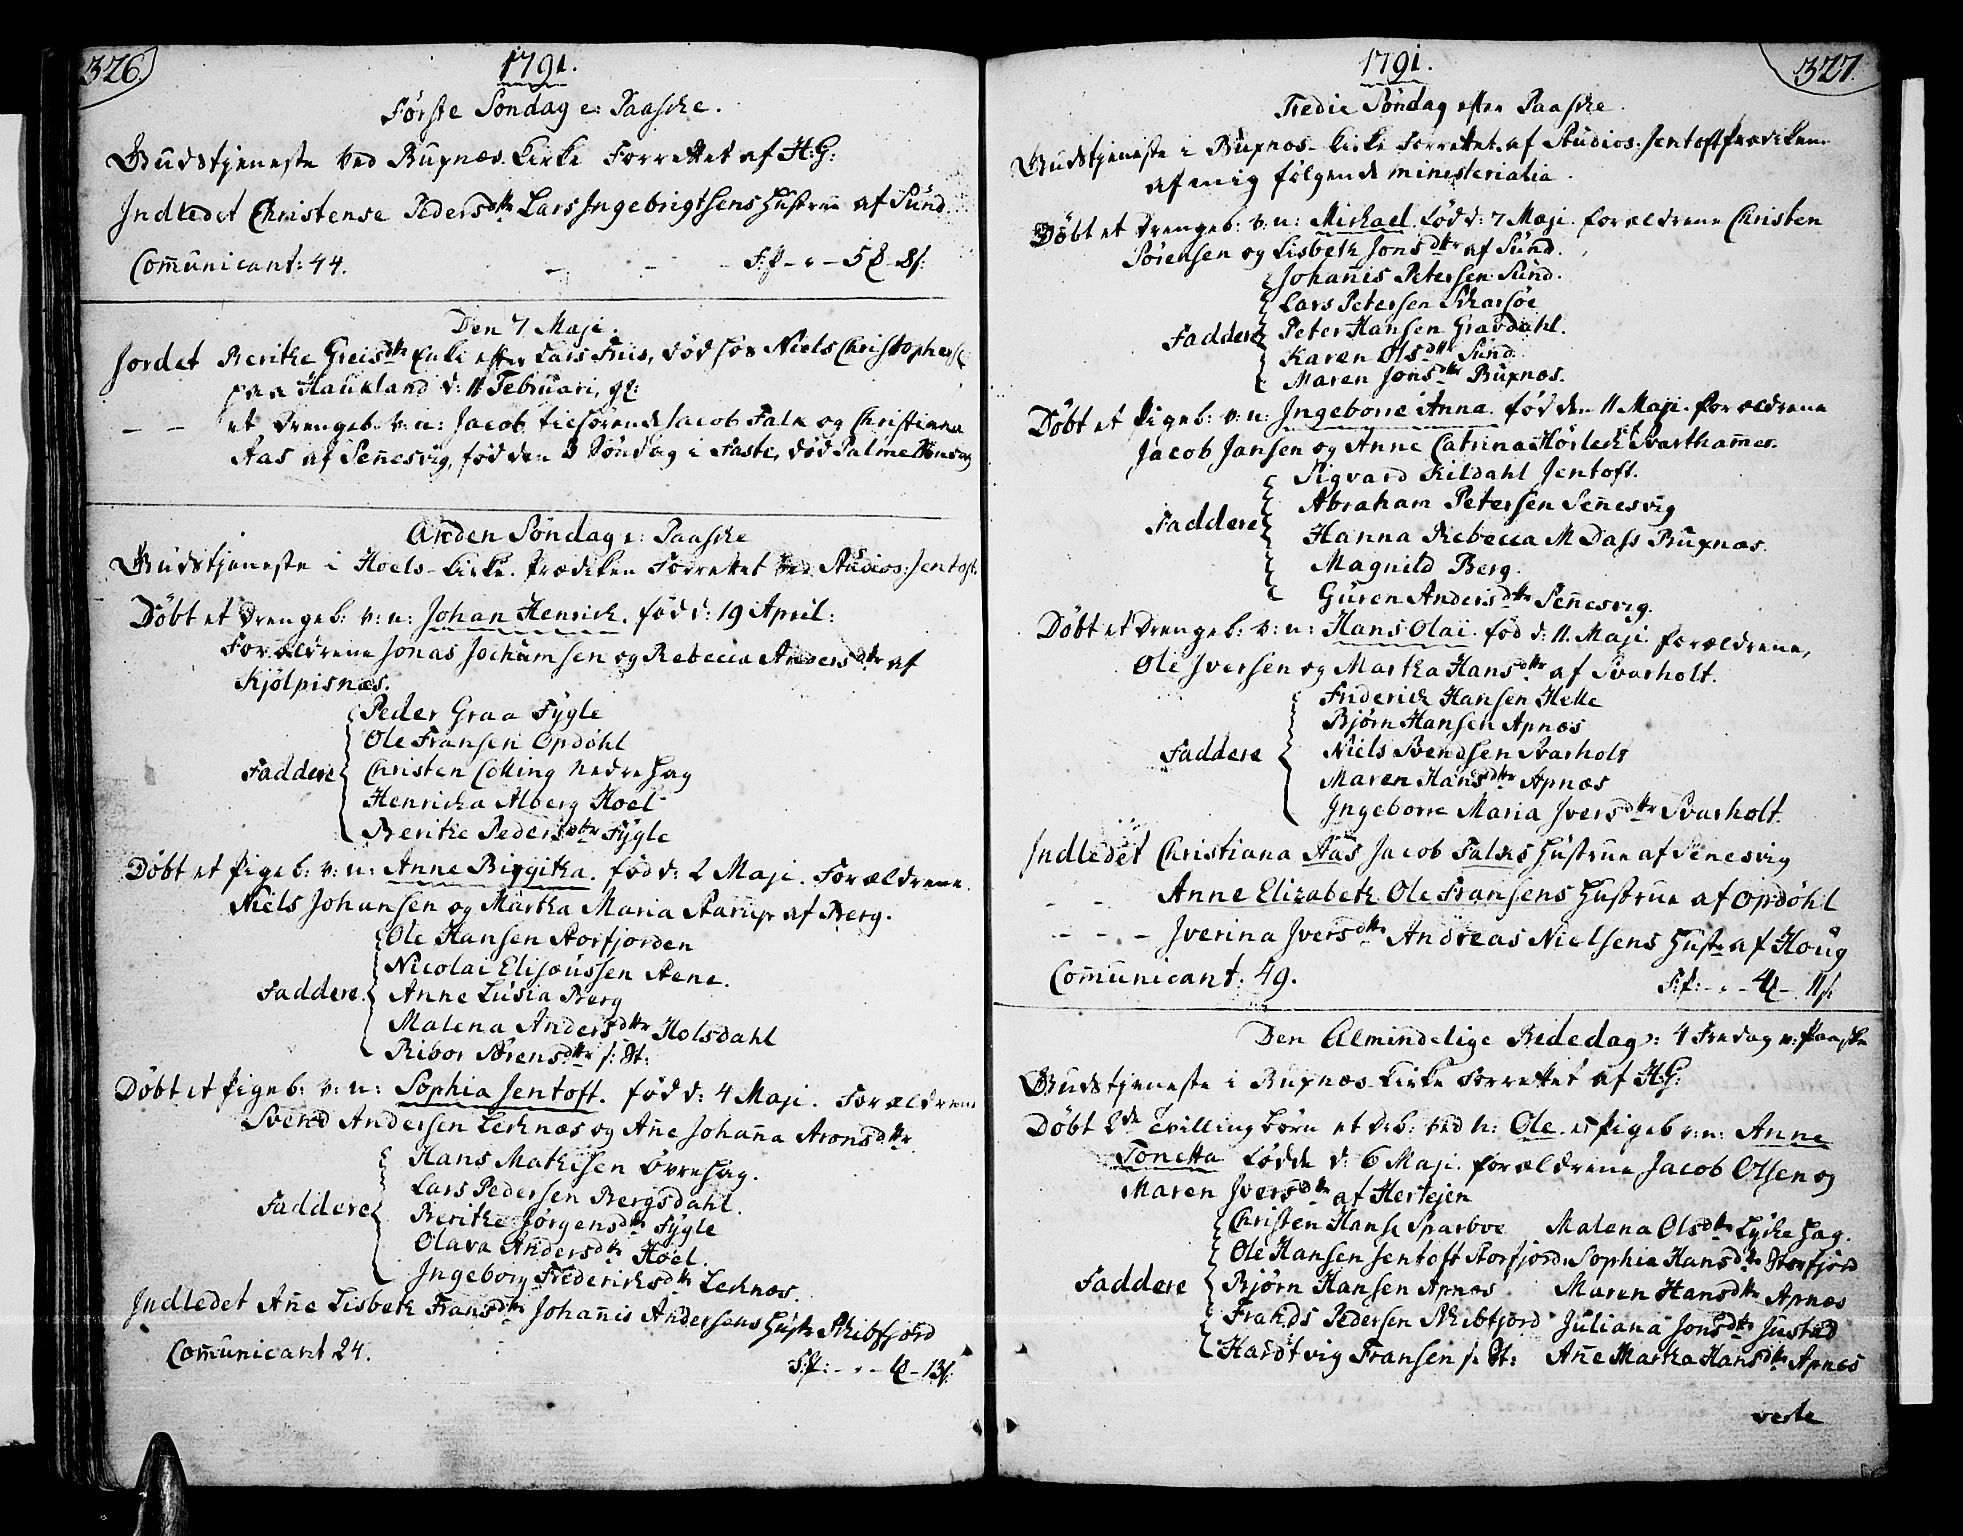 326.
1791.
Første Søndag e: Paaske.
Gudstjeneste ved Buxnæs Kirke Forrettet af H:G:
Indledet Christense Peders dtr Lars Ingebrigtsens Hustrue af Sund.
Com̄unicant: 44.
Den 7 Maji.
Jordet Berithe Greis dtr Enke efter Lars Friis, død hos Niels Christophers:
paa Haukland d: 11 Februari,
— — et Drengeb: v: n: Jacob tilhørende Jacob Falk og Christiana
Aas af Sen̄esvig, fød den 3 Søndag i Faste, død Palme Sønd
Anden Søndag e: Paaske
Gudstjeneste i Hoels-Kirke. Prædiken Forrettet ved Studios: Jentoft.
Døbt et Drengeb: v: n: Johan Henrich. fød d: 19 April:
Forældrene Jonas Jochumsen og Rebecca Anders dtr af
Kjølpisnæs.
Peder Graa Fygle
Ole Fransen Opdøhl
Faddere Christen Colling Nedre Hag
Henricka Alberg Hoel
Berithe Peders dtr Fygle
Døbt et Pigeb: v: n: Anne Birgitha. fød d: 2 Maji. Forældrene
Niels Johansen og Martha Maria Aarup af Berg.
Ole Hansen Storfjorden
Nicolai Elisæussen Steene.
Faddere Anne Lusia Berg
Malena Anders dtr Holsdahl
Ribor Sørens dtr s: St:
Døbt et Pigeb: v: n: Sophia Jentoft. fød d: 4 Maji. Forældrene
Svend Andersen Lecknæs og An̄e Johan̄a Arons dtr.
Hans Mathisen Øvre Hag.
Lars Pedersen Bergsdahl.
Faddere Berithe Jørgens dtr Fygle
Olava Anders dtr Hoel.
Ingeborg Fredericks dtr Lecknæs.
Indledet An̄e Lisbeth Frans dtr Johan̄is Andersens Hustr Skibfjord
Com̄unicant 24.
327.
1791.
Tredie Søndag efter Paaske.
Gudstjeneste i Buxnæs-Kirke Forrettet af Studios: Jentoft Prædiken
af mig følgende ministerialia.
Døbt et Drengeb: v: n: Michael. Fød d: 7 Maji. forældrene Christen
Sørensen og Lisbeth Jons dtr af Sund.
Johan̄is Petersen Sund.
Lars Petersen Skarsøe
Faddere Peter Hansen Gravdahl.
Karen Ols dtr Sund.
Maren Jons dtr Buxnæs.
Døbt et Pigeb: v: n: Ingeborre Anna. fød den 11 Maji. forældrene
Jacob Jansen og Anne Catrina Hørleck af Svartham̄er.
Sigvard Kildahl Jentoft.
Abraham Petersen Sen̄esvig
Faddere Hanna Rebecca M Dass Buxnæs.
Magnild Berg.
Guren Anders dtr Sen̄esvig.
Døbt et Drengeb: v: n: Hans Olai. fød d: 11. Maji. forældrene,
Ole Iversen og Martha Hans dtr af Svarholt.
Friderich Hansen Helle
Bjørn Hansen Apnæs
Faddere Niels Svendsen Svarholt
Maren Hans dtr Apnæs
Ingeborre Maria Ivers dtr Svarholt.
Indledet Christiana Aas Jacob Falcks Hustrue af Senesvig
— — Anne Elizabeth Ole Fransens Hustrue af Opdøhl
— — — Iverina Ivers dtr Andreas Nielsens Hustr af Houg
Com̄unicant: 49.
Den Almindelige Bededag: 4 Fredag e: Paaske
Gudstjeneste i Buxnæs-Kirke Forrettet af H:G:
Døbt 2de Tvilling børn et D:b: ved n: Ole. et Pigeb v: n: Anne
Tonetta Fødde d: 6 Maji. forældrene Jacob Olsen og
Maren Ivers dtr af Hertejen
Christen Hans: Sparboe Malena Ols dtr Lyche Hag.
Ole Hansen Jentoft Storfjord: Sophia Hans dtr Storfjord
Faddere Bjørn Hansen Apnæs Maren Hans dtr Apnæs
Frands Pedersen Skibfjord Juliana Jons dtr Justad
Hardtvig Fransen s: St: An̄e Martha Hans dtr Apnæs